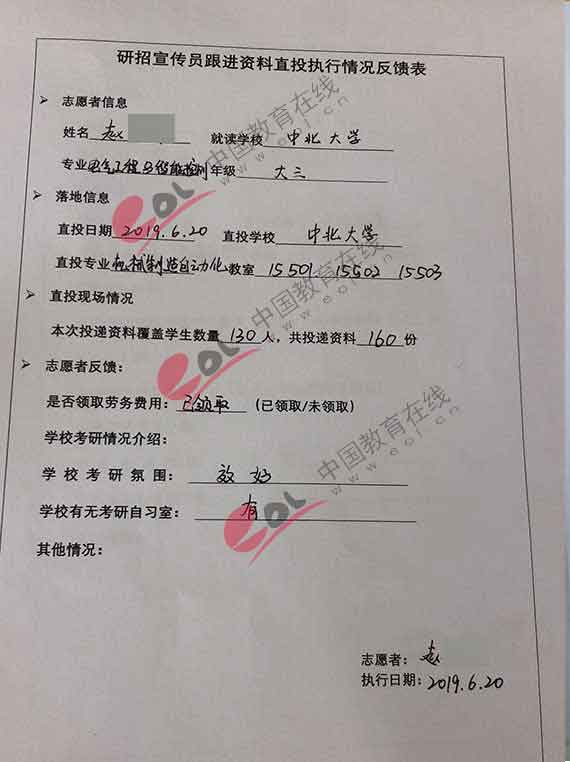 研招宣传员跟进资料直投执行情况反馈表
➢ 志愿者信息
姓名 赵 就读学校 中北大学
专业 电气工程及智能控制 年级 大三
➢ 落地信息
直投日期 2019.6.20 直投学校 中北大学
直投专业 机械制造自动化 教室 15501 15502 15503
➢ 直投现场情况
本次投递资料覆盖学生数量 130 人，共投递资料 160 份
➢ 志愿者反馈：
是否领取劳务费用：已领取 （已领取/未领取）
学校考研情况介绍：
学校考研氛围： 较好
学校有无考研自习室： 有
其他情况：
志愿者： 赵
执行日期：2019.6.20
eol 中国教育在线
www.eol.cn
eol 中国教育在线
www.eol.cn
eol 中国教育在线
www.eol.cn